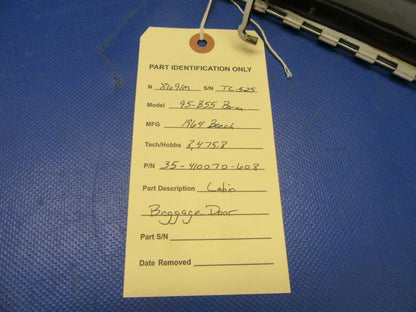 PART IDENTIFICATION ONLY
N 8169M S/N TC-525
Model 95-B55 Baron
MFG 1964 Beech
Tach/Hobbs 2,475.8
P/N 35-410070-608
Part Description Cabin
Baggage Door
Part S/N
Date Removed